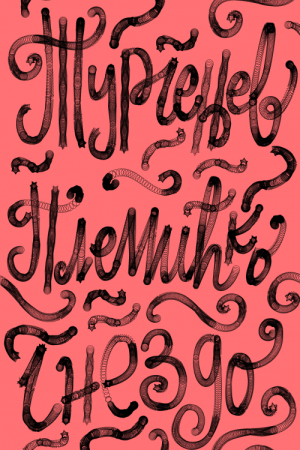 Тургењев
Племићко
гнездо